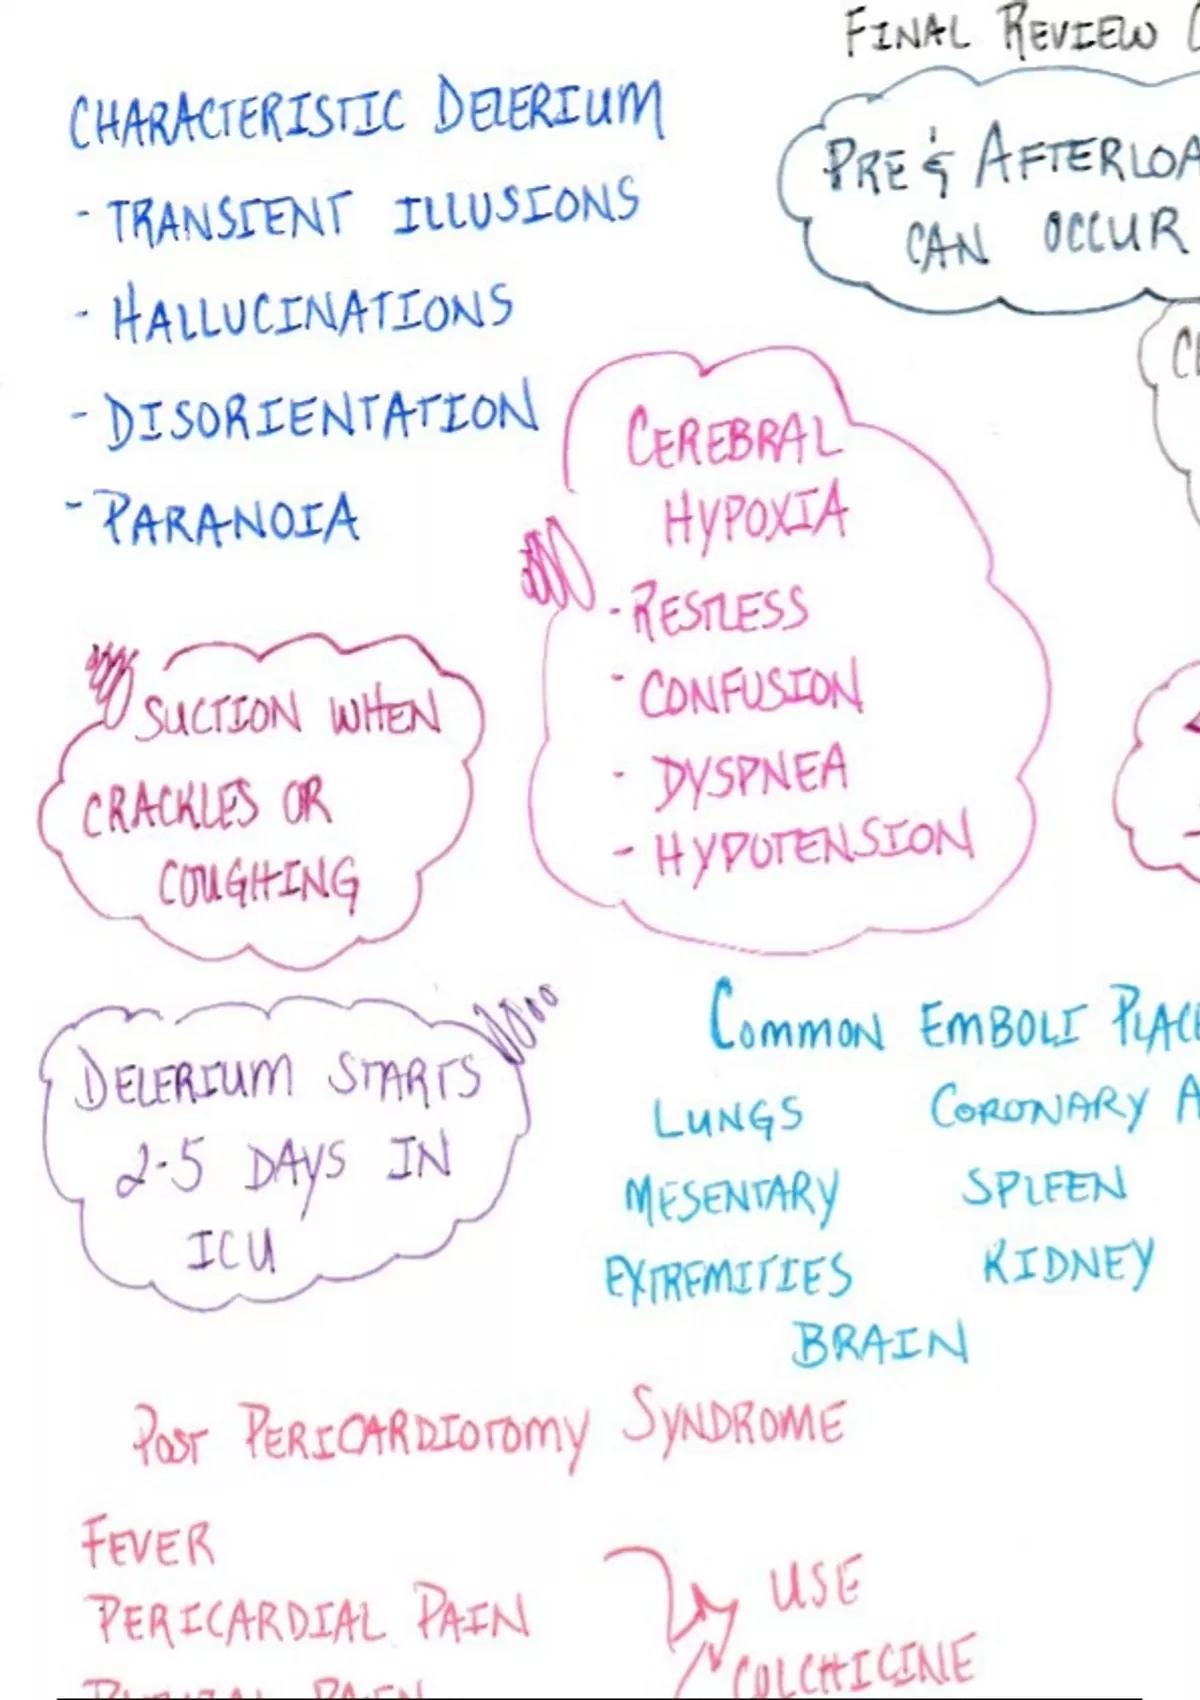 FINAL REVIEW
CHARACTERISTIC DELERIUM
- TRANSIENT ILLUSIONS
- HALLUCINATIONS
- DISORIENTATION
- PARANOIA
PRE & AFTERLOA
CAN OCCUR
CEREBRAL
HYPOXIA
- RESTLESS
- CONFUSION
- DYSPNEA
- HYPOTENSION
SUCTION WHEN
CRACKLES OR
COUGHING
DELERIUM STARTS
2-5 DAYS IN
ICU
COMMON EMBOLI PLAC
LUNGS CORONARY A
MESENTARY SPLEEN
EXTREMITIES KIDNEY
BRAIN
POST PERICARDIOTOMY SYNDROME
FEVER
PERICARDIAL PAIN
USE
COLCHICINE
PAIN